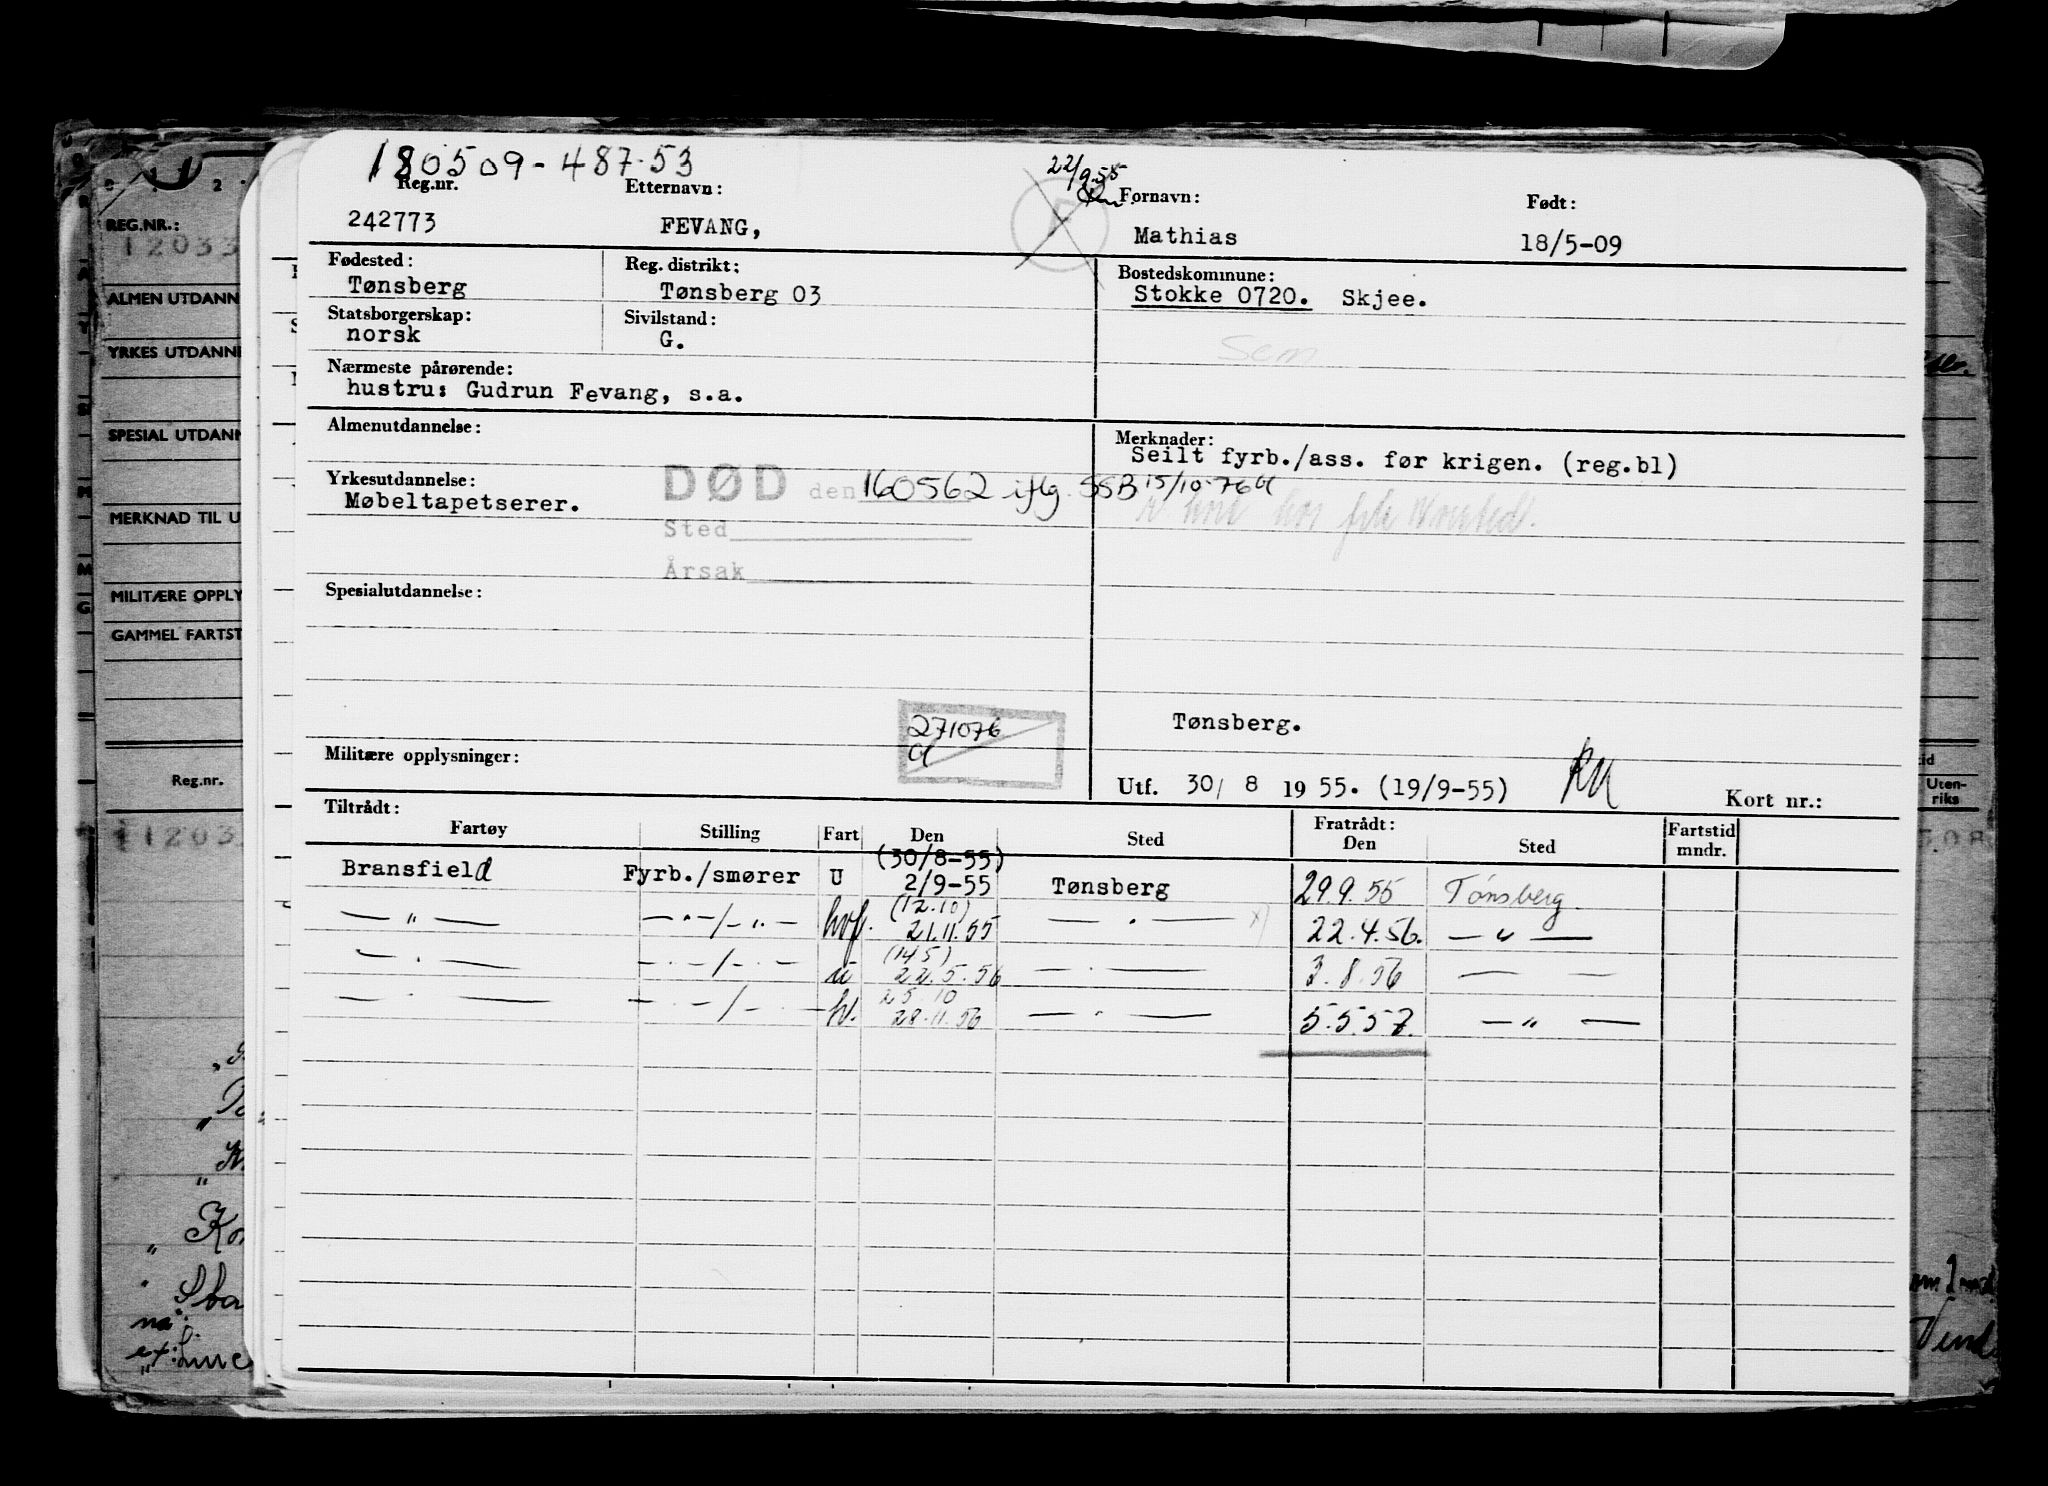 180509-487.53
22/9.55
Reg.nr. Etternavn: Fornavn: Født:
242773 FEVANG, F Mathias 18/5-09
Fødested: Reg. distrikt: Bostedskommune:
Tønsberg Tønsberg 03 Stokke 0720. Skjee.
Statsborgerskap: Sivilstand:
norsk G. Sem
Nærmeste pårørende:
hustru: Gudrun Fevang, s.a.
Almenutdannelse: Merknader:
Seilt fyrb./ass. før krigen. (reg.bl)
Yrkesutdannelse: DØD den 160562 iflg. SSB 15/10-76
Møbeltapetserer.
Sted
Årsak
Spesialutdannelse:
271076 Tønsberg.
Militære opplysninger:
Utf. 30/ 8 1955. (19/9-55) Kort nr.:
Tiltrådt: Fratrådt: Fartstid
Fartøy Stilling Fart Den Sted Den Sted mndr.
(30/8-55)
Bransfield Fyrb./smører U 2/9-55 Tønsberg 29.9.55 Tønsberg.
(12.10)
— " — — " —/— " — hvf. 21.11.55 — " — x) 22.4.56. — " —
(14.5)
— " — — " —/— " — u 22.5.56 — " — 3.8.56 — —
25.10
— " — — " —/— " — hv. 28.11.56 — " — 5.5.57. — " —
REG.NR.:
12033
ALMEN UTDANN
YRKES UTDANNE
SPESIAL UTDANN
MERKNAD TIL U
MILITÆRE OPPLY
GAMMEL FARTST
Reg.nr.
Uten-
riks
1203
508